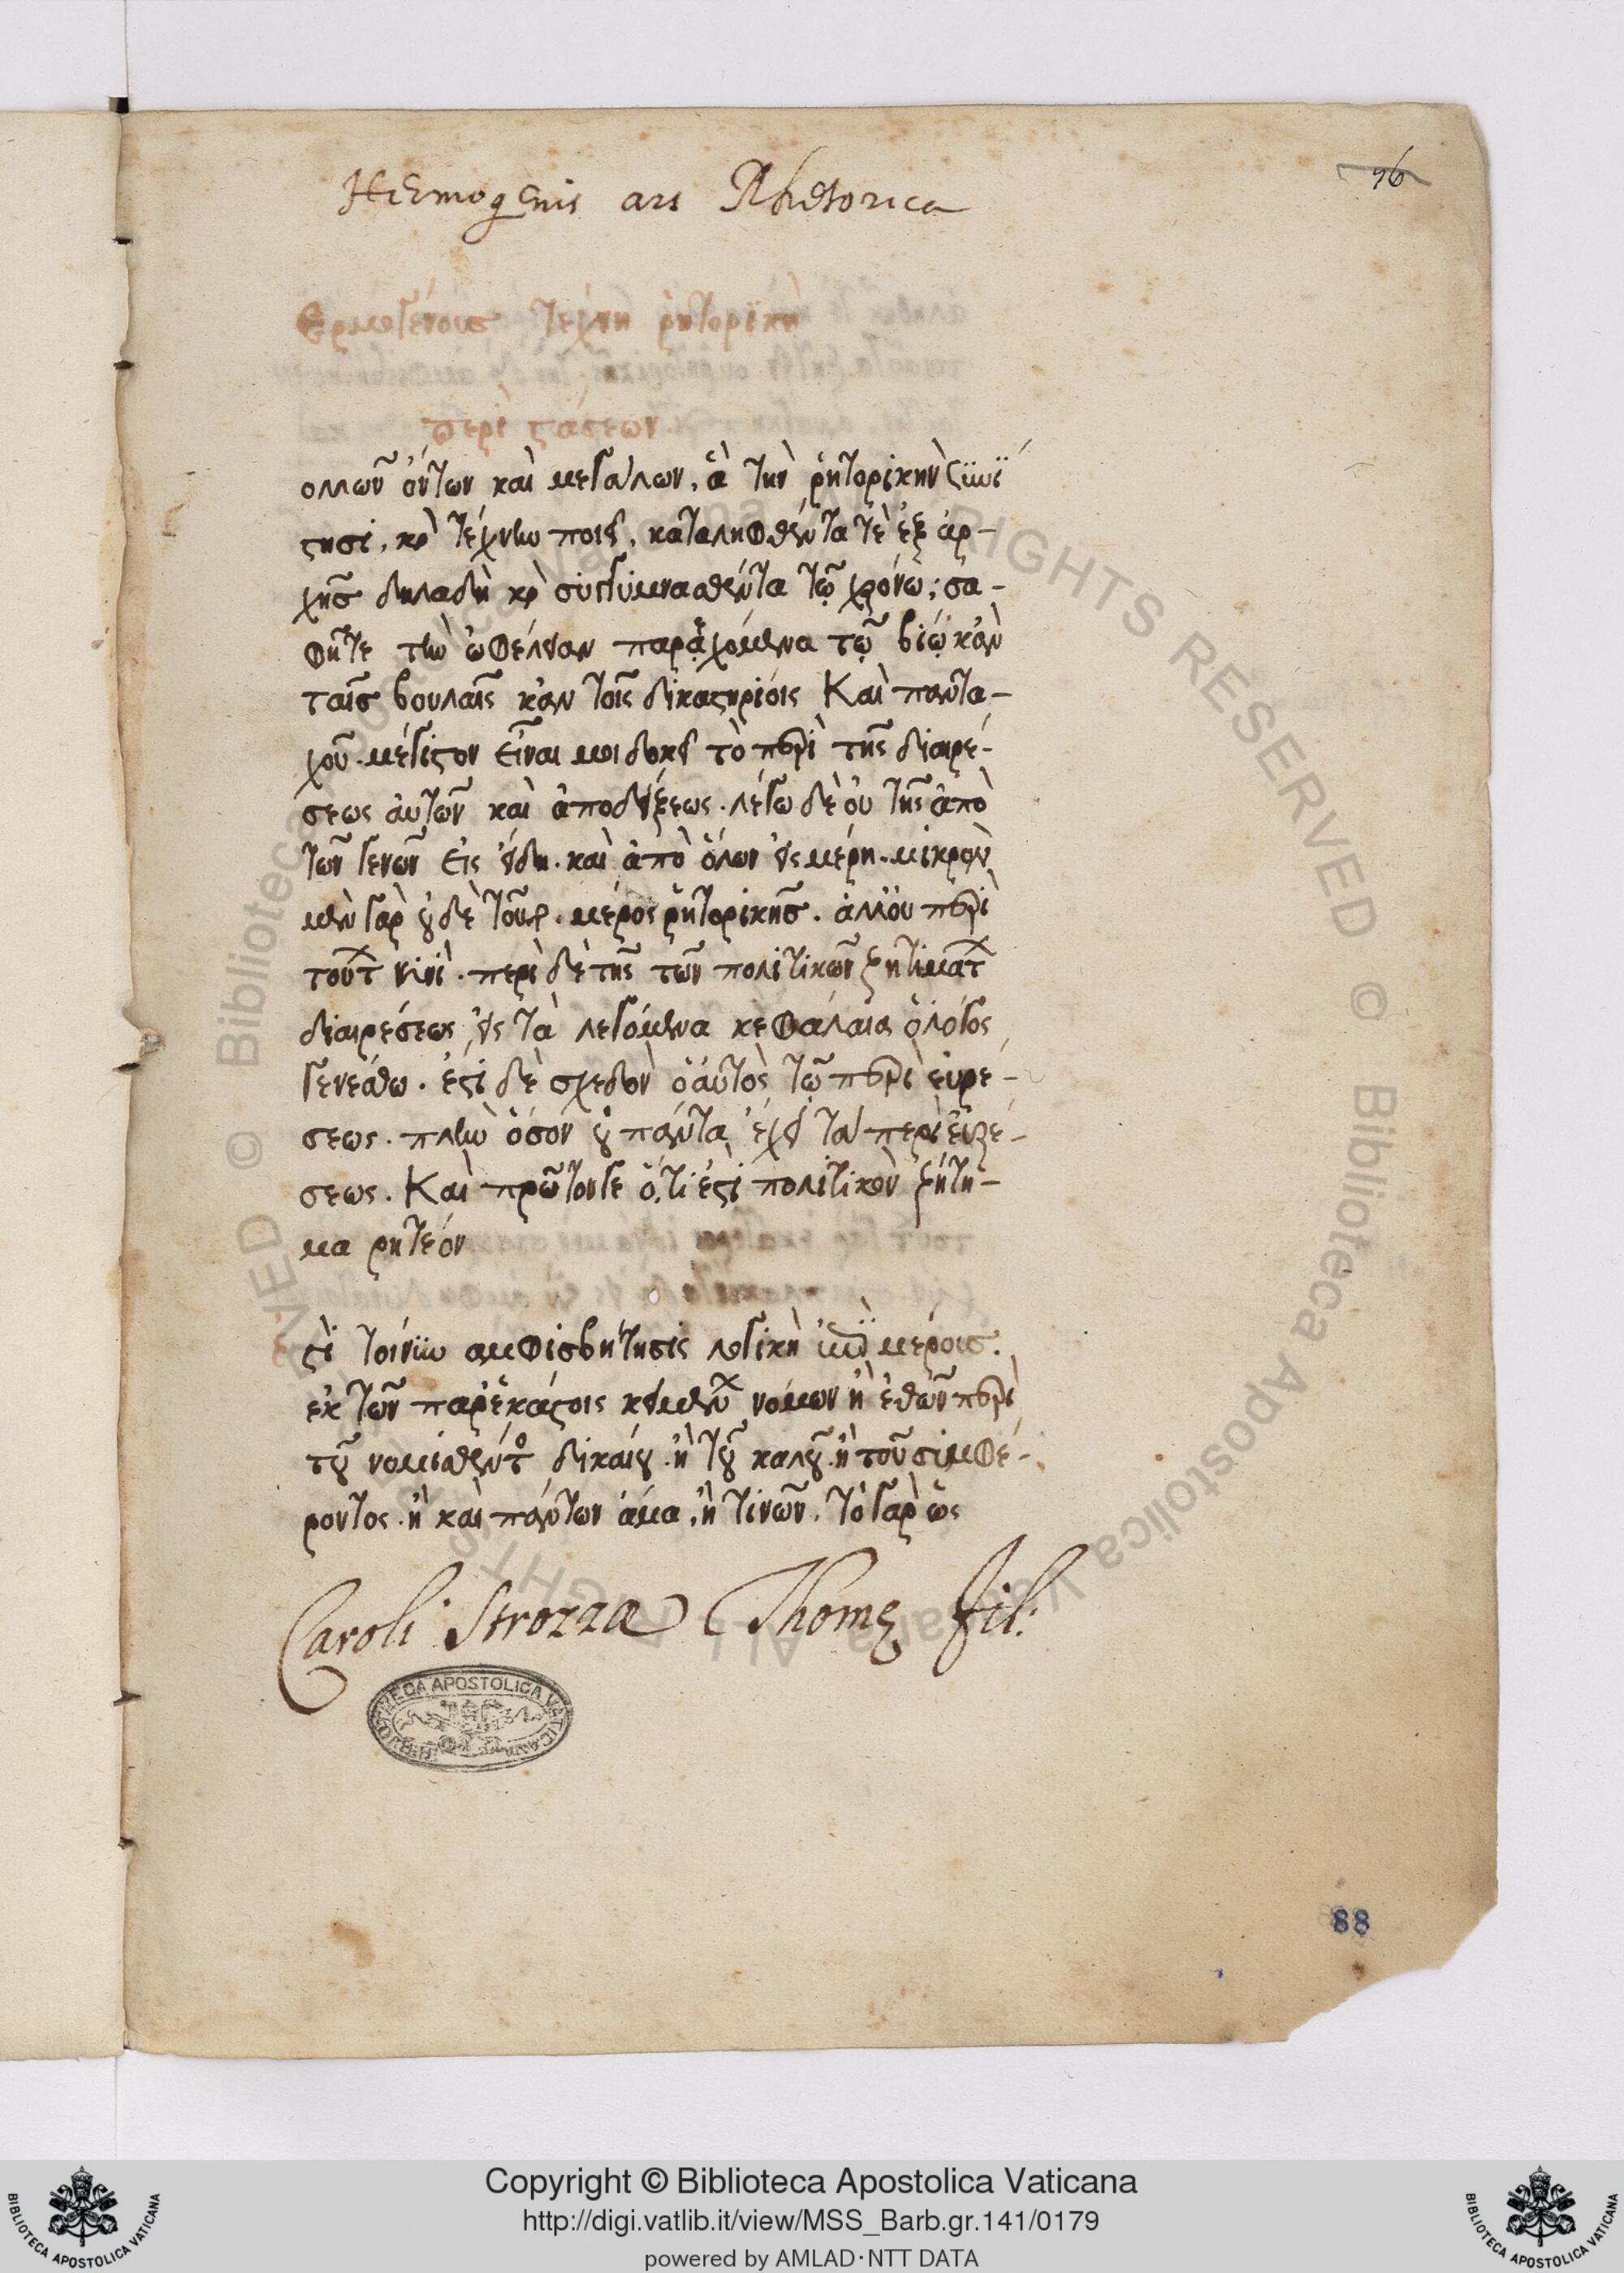 Hermogenis ars Rhetorica
96
Ερμογένους τέχνη ῥητορικὴ
περὶ στάσεων
ολλῶν ὄντων καὶ μεγάλων, ἃ τὴν ῥητορικὴν συνί
στησι, καὶ τέχνην ποιεῖ, καταληφθέντα τὲ ἐξ ἀρ-
χῆς δηλαδὴ καὶ συγγυμνασθέντα τῷ χρόνῳ; σα-
φῆτε τὴν ὠφέλειαν παρεχόμενα τῷ βίῳ κἀν
ταῖς βουλαῖς κἀν τοῖς δικαστηρίοις Καὶ παντα-
χοῦ. μέγιστον εἶναι μοι δοκεῖ τὸ περὶ τῆς διαιρέ-
σεως αὐτῶν καὶ ἀποδείξεως. λέγω δὲ οὐ τῆς ἀπὸ
τῶν γενῶν εἰς εἴδη. καὶ ἀπὸ ὅλων εἰς μέρη. μικρὸν
μὲν γὰρ οὐδὲ τοῦτο. μέρος ῥητορικῆς. ἀλλ' οὐ περὶ
τούτων νυνὶ. περὶ δὲ τῆς τῶν πολιτικῶν ζητιμάτων
διαιρέσεως, εἰς τὰ λεγόμενα κεφάλαια ὁ λόγος
γενέσθω. ἐστὶ δὲ σχεδὸν ὁ αὐτὸς τῷ περὶ εὑρέ-
σεως. πλὴν ὅσον οὐ πάντα ἔχει τὰ περὶ εὑρέ-
σεως. Καὶ πρῶτον γε ὅ,τι ἐστὶ πολιτικὸν ζήτη-
μα ρητέον
στὶ τοίνυν αμφισβήτησις λογικὴ ἐπὶ μέρους.
ἐκ τῶν παρ' ἑκάστοις κειμένων νόμων ἢ ἐθῶν περὶ
τοῦ νομισθέντος δικαίου. ἢ τοῦ καλοῦ. ἢ τοῦ σιμφέ-
ροντος. ἢ καὶ πάντων ἅμα. ἢ τινῶν. τὸ γὰρ ὡς
Caroli Strozzæ Thomę fil:
BIBLIOTECA APOSTOLICA VATICANA
88
Copyright © Biblioteca Apostolica Vaticana
http://digi.vatlib.it/view/MSS_Barb.gr.141/0179
powered by AMLAD·NTT DATA
BIBLIOTECA APOSTOLICA VATICANA
BIBLIOTECA APOSTOLICA VATICANA
© Biblioteca Apostolica Vaticana ALL RIGHTS RESERVED © Biblioteca Apostolica Vaticana ALL RIGHTS RESERVED